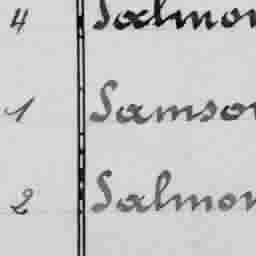 4 Salmon
1 Samson
2 Salmon